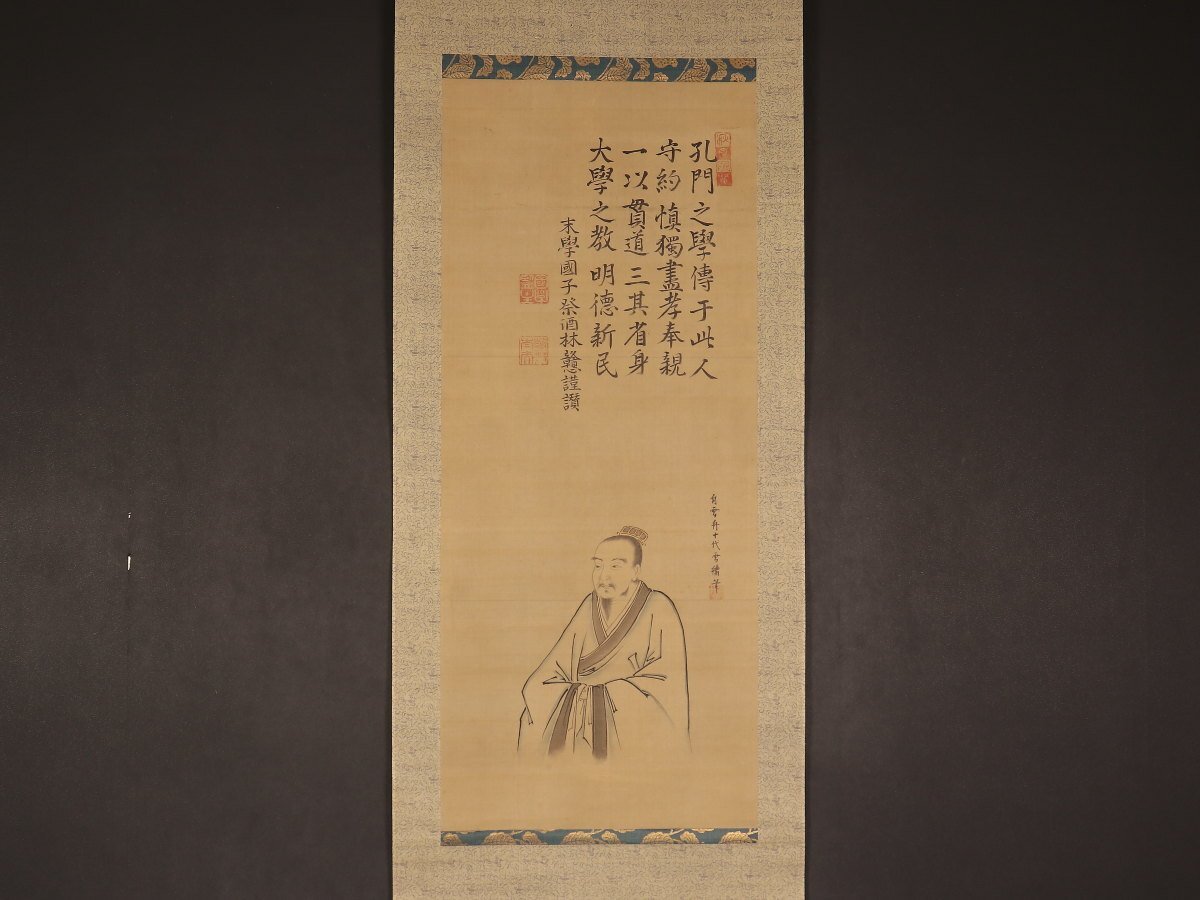 孔門之學傳于此人
守約慎獨盡孝奉親
一以貫道三其省身
大學之教明德新民
末學國子祭酒林戇謹讚
自雪舟十代
筆